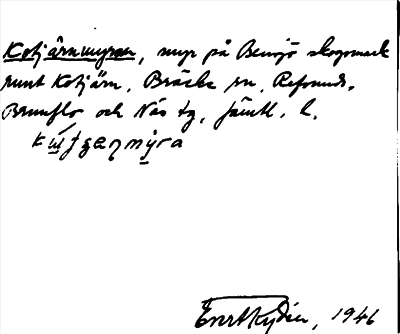 Kotjärnmyren, myr på Bensjö skogsmark
runt Kotjärn, Bräcke sn, Refsunds,
Brunflo och Näs tg, Jämtl. l.
Evert Rydén, 1946